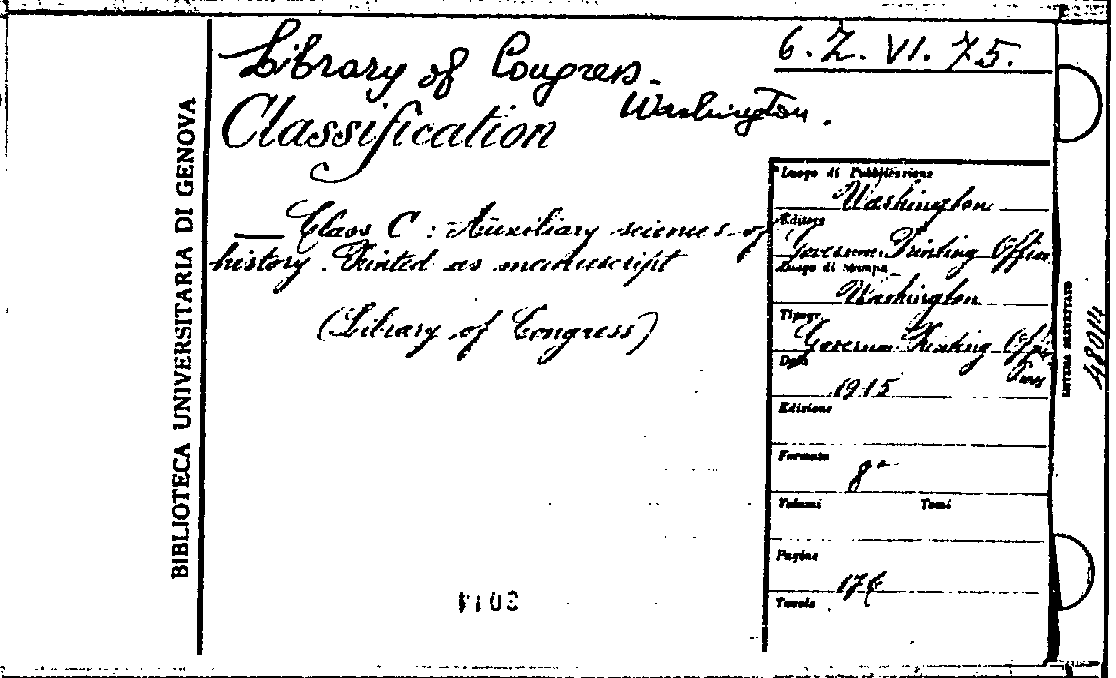 Library of Congress.
Washington.
6. Z. VI. 75.
Classification
BIBLIOTECA UNIVERSITARIA DI GENOVA
— Class C : Auxiliary sciences of
history. Printed as manuscript
(Library of Congress)
Luogo di Pubblicazione
Washington
Editore
Governm. Printing Office
Luogo di stampa
Washington
Tipogr.
Governm. Printing
Data
1915
Edizione
Formato
8°
Volumi Tomi
Pagine
Tavole
48014